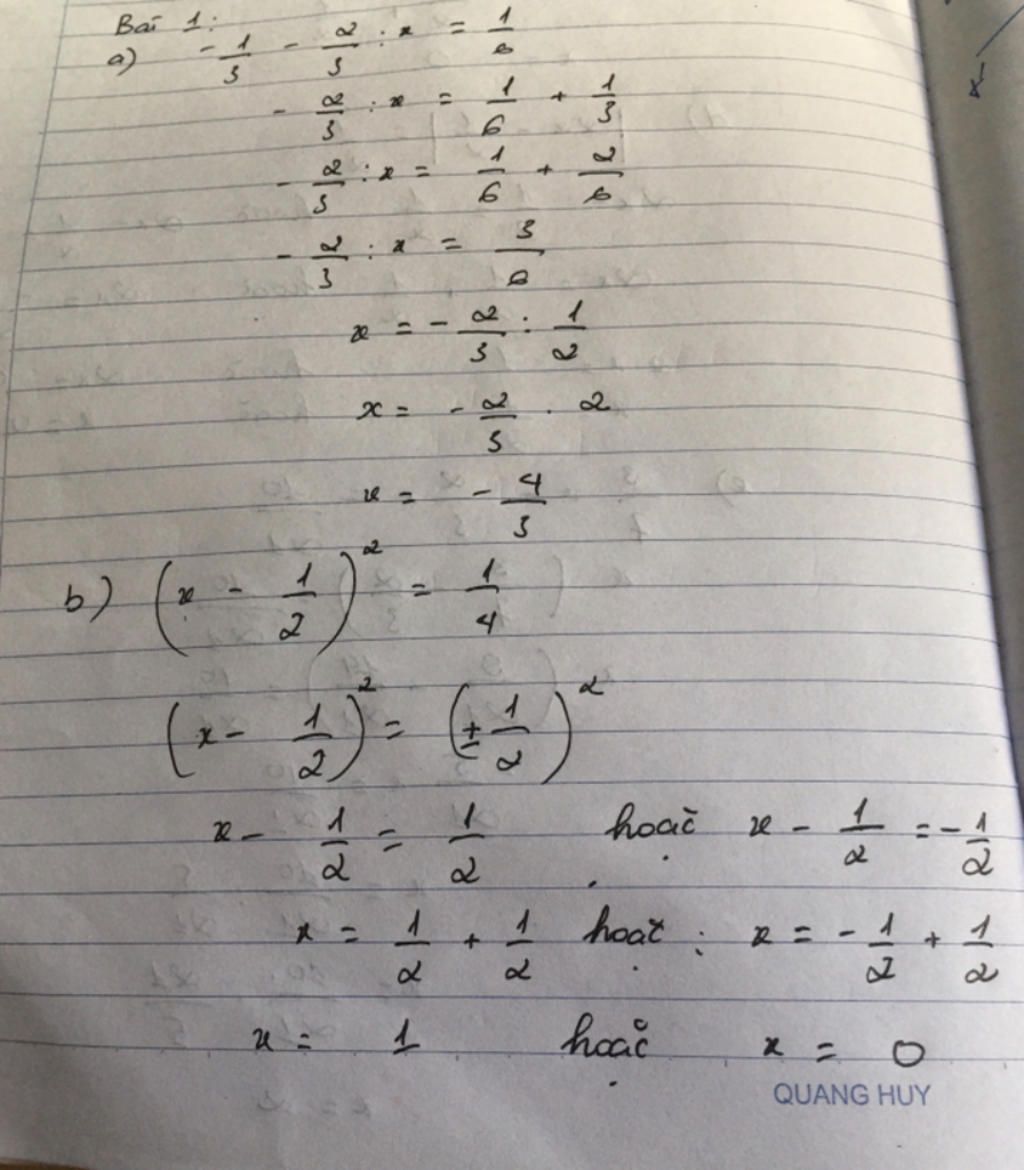 Bài 1:
a) -1/3 - 2/3 : x = 1/6
-2/3 : x = 1/6 + 1/3
-2/3 : x = 1/6 + 2/6
-2/3 : x = 3/6
x = -2/3 : 1/2
x = -2/3 . 2
x = -4/3
b) (x - 1/2)² = 1/4
(x - 1/2)² = (±1/2)²
x - 1/2 = 1/2 hoặc x - 1/2 = -1/2
x = 1/2 + 1/2 hoặc : x = -1/2 + 1/2
x = 1 hoặc x = 0
QUANG HUY